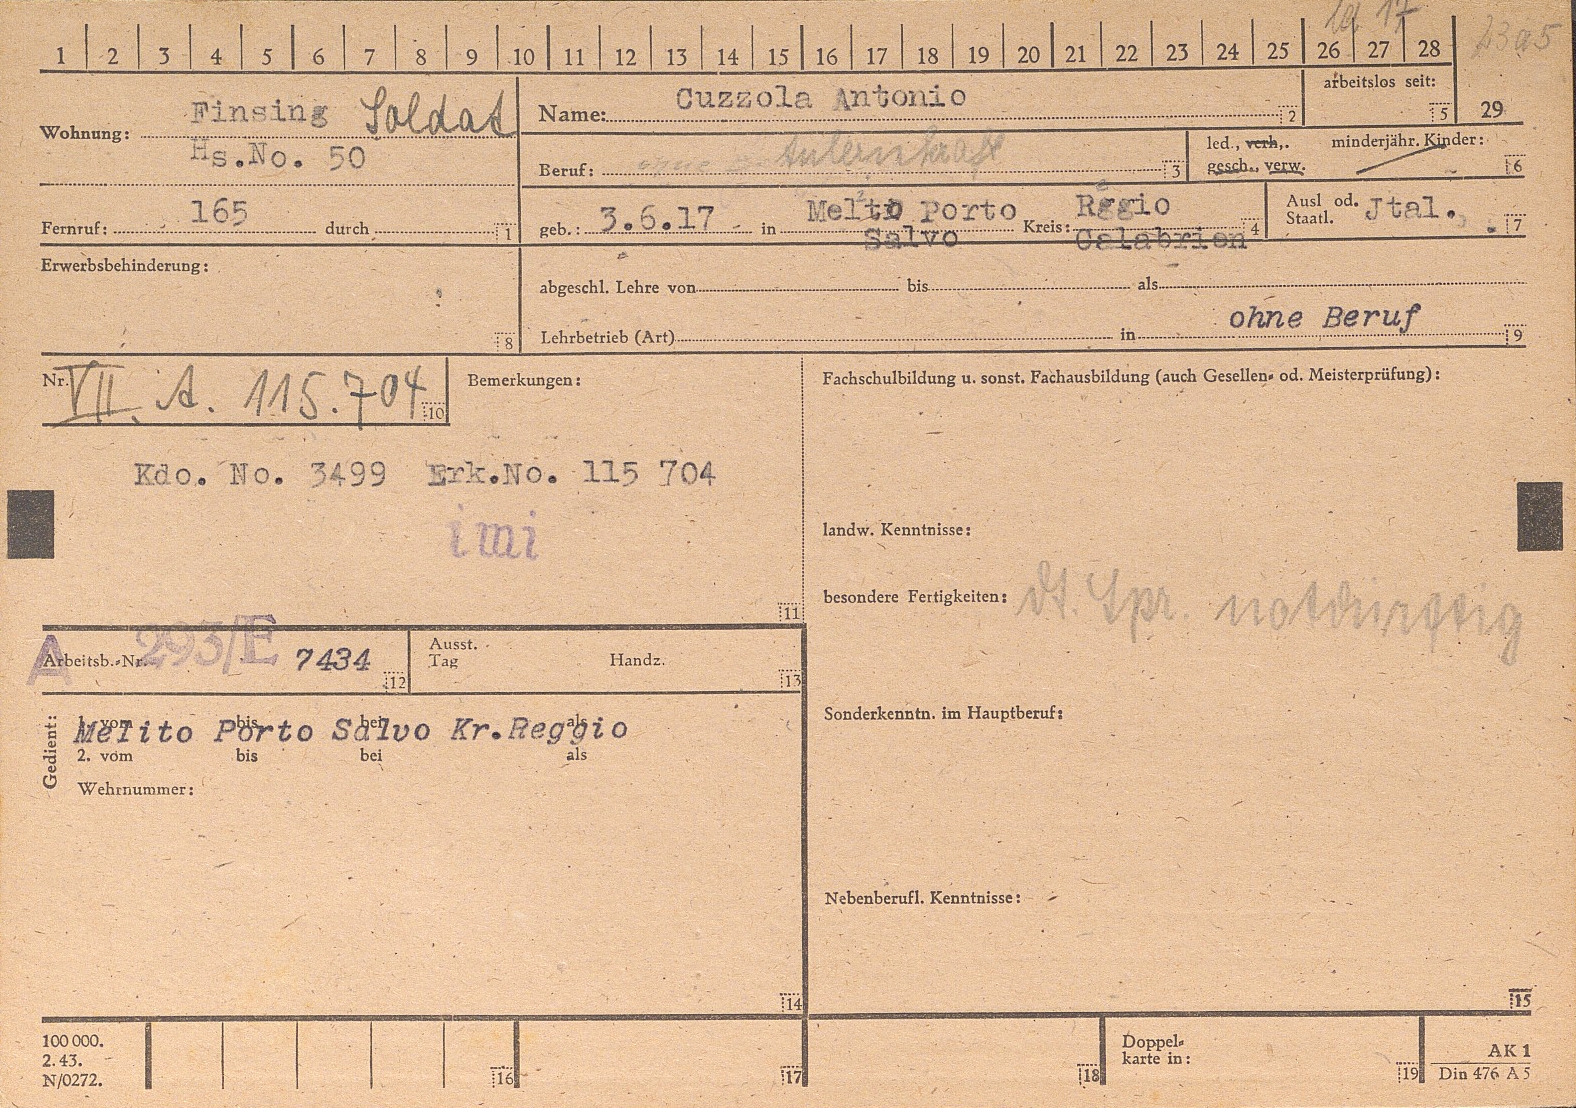 1 2 3 4 5 6 7 8 9 10 11 12 13 14 15 16 17 18 19 20 21 22 23 24 25 26 27 28
23a5
Wohnung: Finsing Soldat
Hs.No. 50
Name: Cuzzola Antonio 2
arbeitslos seit: 5
29
Beruf: 3
led., verh., gesch., verw.
minderjähr. Kinder: 6
Fernruf: 165 durch 1
geb.: 3.6.17 in Melito Porto Salvo Kreis: Rggio Calabrien 4
Ausl od. Staatl. Jtal. 7
Erwerbsbehinderung: 8
abgeschl. Lehre von bis als
Lehrbetrieb (Art) in ohne Beruf 9
Nr. VII. A. 115.704 10
Bemerkungen:
Kdo. No. 3499 Erk.No. 115 704
imi
11
A Arbeitsb.-Nr. 293/E 7434 12
Ausst. Tag Handz. 13
Gedient:
1. vom bis bei als
Melito Porto Salvo Kr.Reggio
2. vom bis bei als
Wehrnummer:
14
Fachschulbildung u. sonst. Fachausbildung (auch Gesellen- od. Meisterprüfung):
landw. Kenntnisse:
besondere Fertigkeiten: dt. Spr. notdürftig
Sonderkenntn. im Hauptberuf:
Nebenberufl. Kenntnisse:
15
100 000.
2. 43.
N/0272.
16
17
18
Doppel-
karte in: 19
AK 1
Din 476 A 5